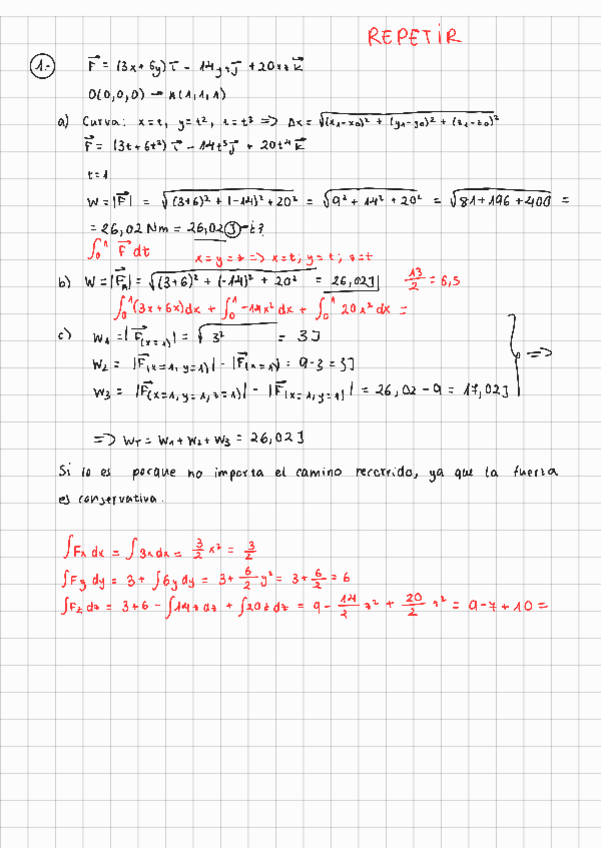 REPETIR
1.- F⃗ = (3x + 6y) i⃗ - 14yz j⃗ + 20xz k⃗
O(0,0,0) → A(1,1,1)
a) Curva: x=t, y=t², z=t³ => Δx = √((x₁-x₀)² + (y₁-y₀)² + (z₁-z₀)²)
F⃗ = (3t + 6t²) i⃗ - 14t⁵ j⃗ + 20t⁴ k⃗
t=1
W = |F⃗| = √((3+6)² + (-14)² + 20²) = √(9² + 14² + 20²) = √(81 + 196 + 400) =
= 26,02 Nm = 26,02 J -¿?
∫₀¹ F⃗ dt x = y = z => x=t; y=t; z=t
b) W = |F⃗ₐ| = √((3+6)² + (-14)² + 20²) = 26,02 J 13/2 = 6,5
∫₀¹ (3x + 6x) dx + ∫₀¹ -14x² dx + ∫₀¹ 20x² dx =
c) W₁ = |F⃗(x=1)| = √(3²) = 3 J
W₂ = |F⃗(x=1, y=1)| - |F⃗(x=1)| = 9-3 = 3J
W₃ = |F⃗(x=1, y=1, z=1)| - |F⃗(x=1, y=1)| = 26,02 - 9 = 17,02 J } =>
=> W_T = W₁ + W₂ + W₃ = 26,02 J
Si lo es porque no importa el camino recorrido, ya que la fuerza
es conservativa.
∫Fx dx = ∫3x dx = 3/2 x² = 3/2
∫Fy dy = 3 + ∫6y dy = 3 + 6/2 y² = 3 + 6/2 = 6
∫Fz dz = 3 + 6 - ∫14z dz + ∫20z dz = 9 - 14/2 z² + 20/2 z² = 9 - 7 + 10 =